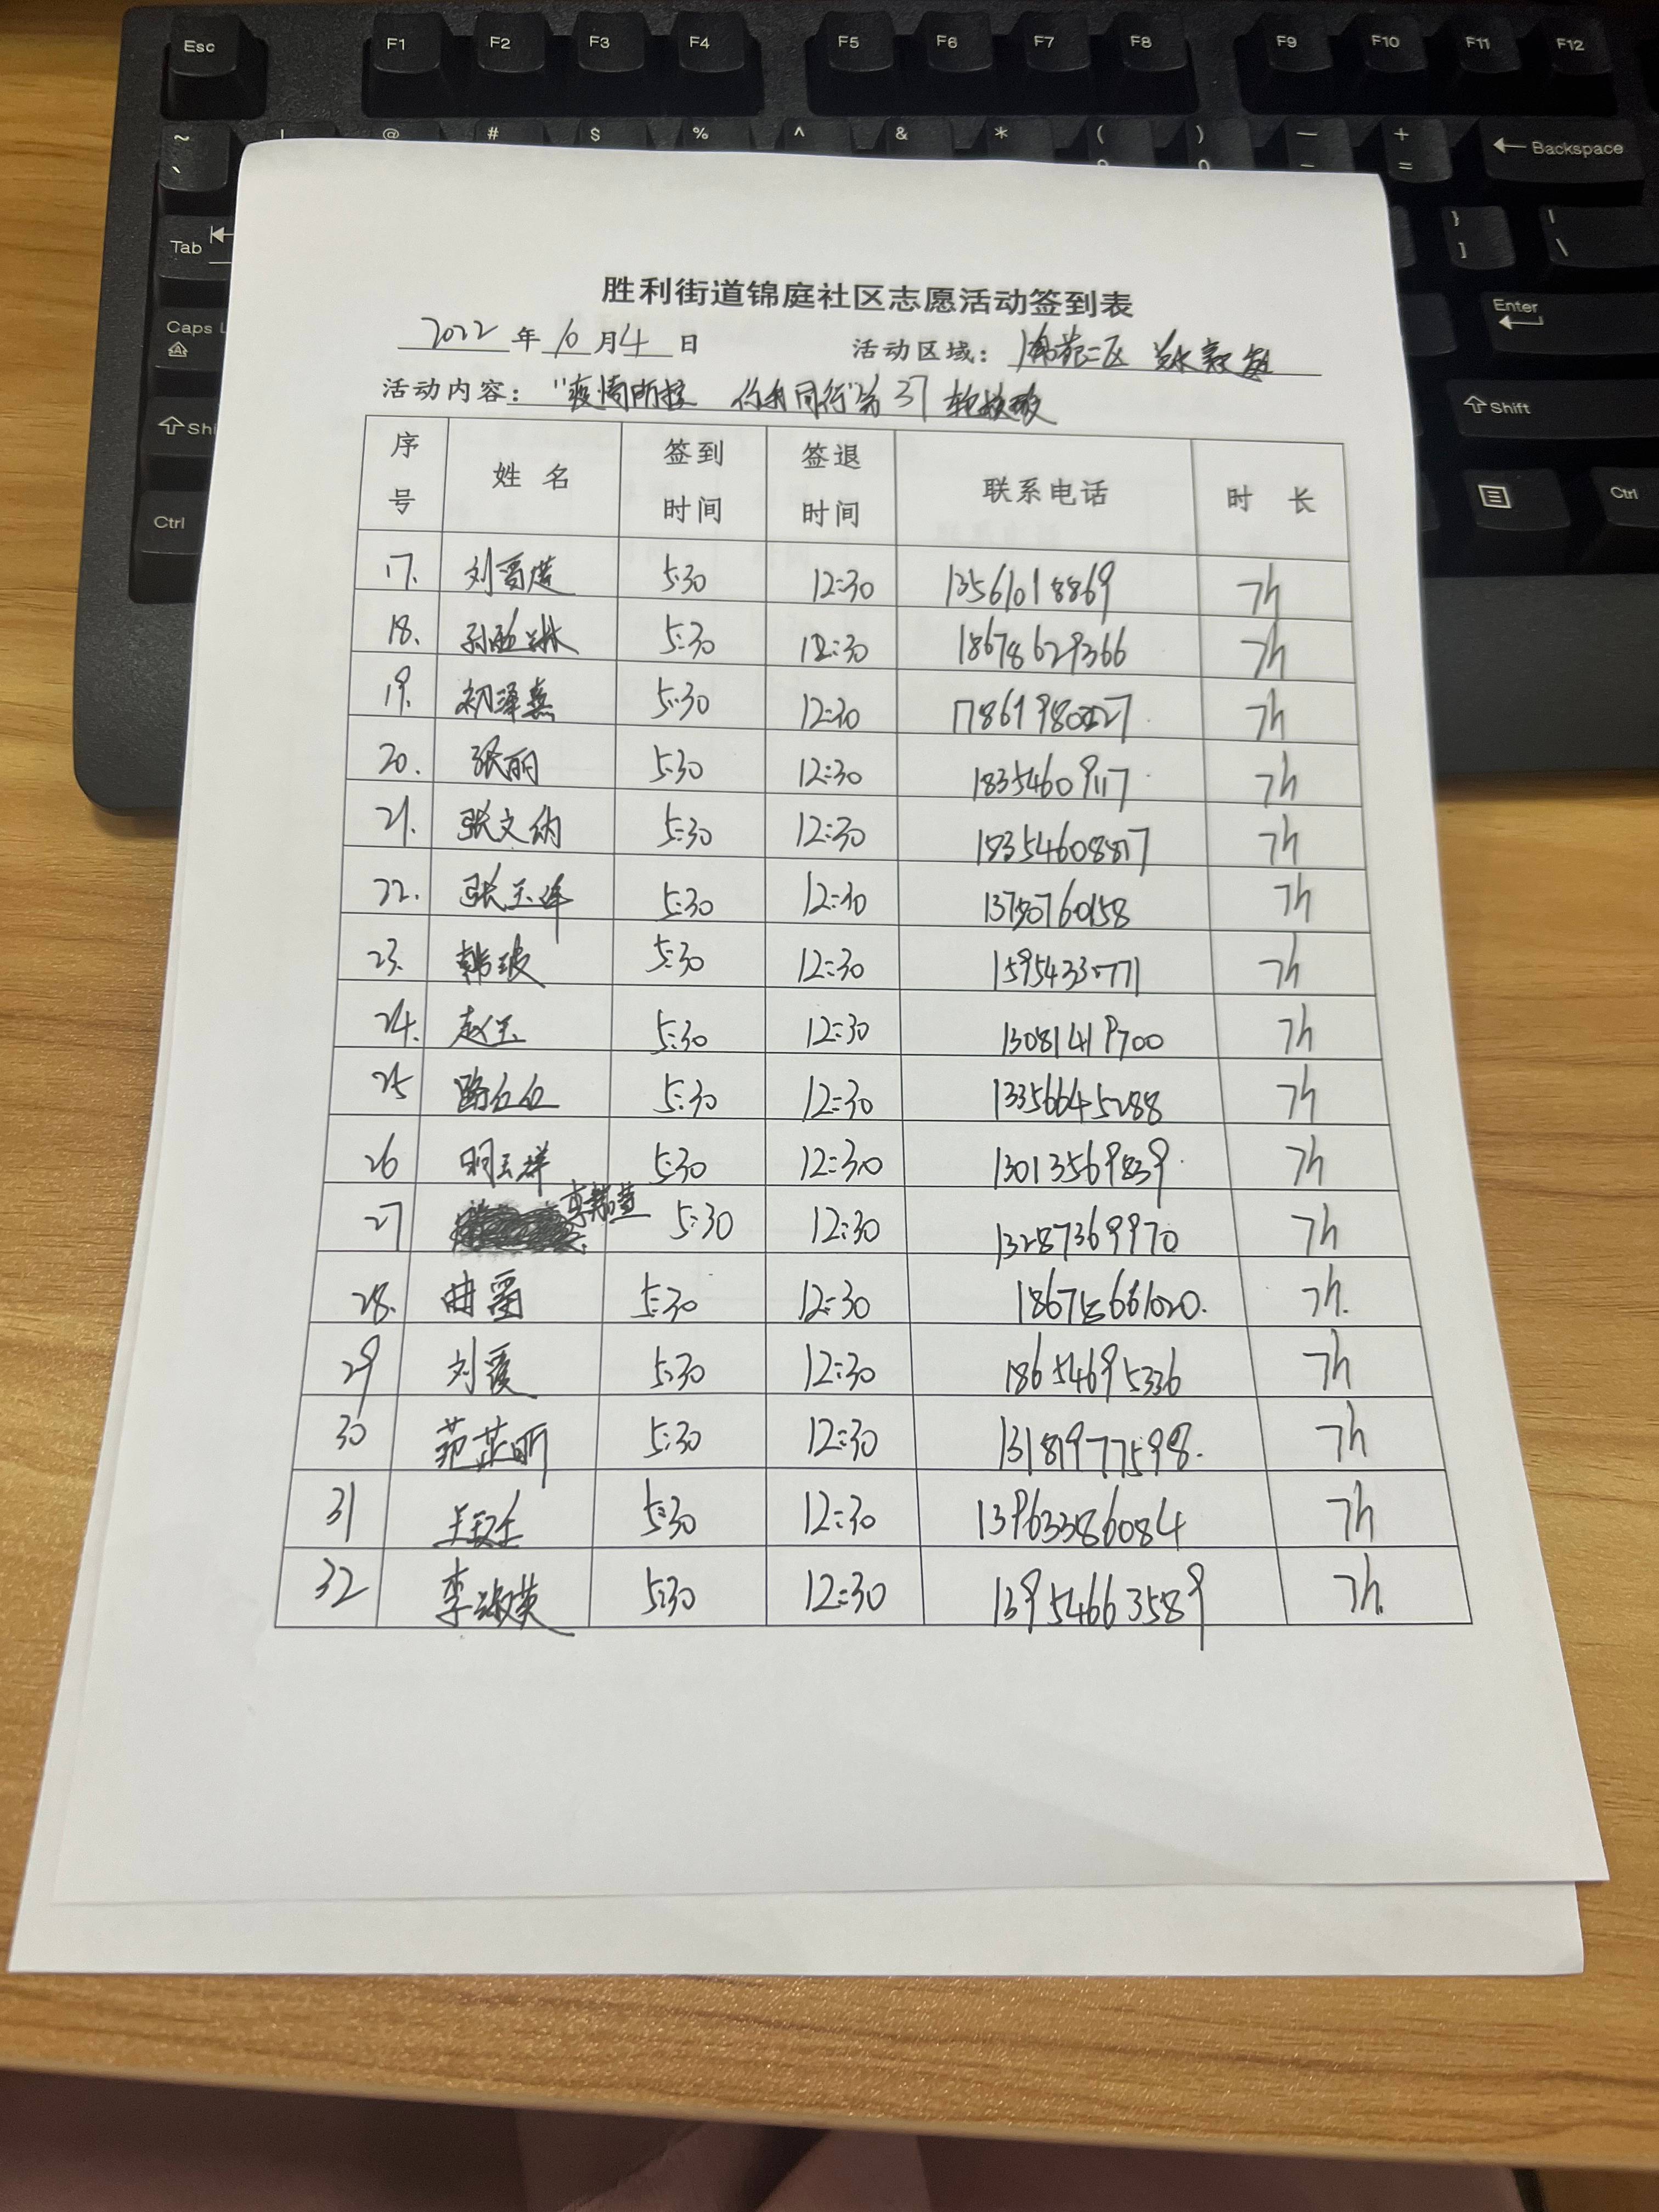 Esc F1 F2 F3 F4 F5 F6 F7 F8 F9 F10 F11 F12
~ ! @ # $ % ^ & * ( ) — + ← Backspace
` – =
Tab } ] | \
Caps L Enter
Shift
Ctrl Ctrl
胜利街道锦庭社区志愿活动签到表
2022 年 6 月 4 日 活动区域： 锦苑二区
活动内容： "疫情防控 你我同行"第37轮核酸
序号 姓名 签到时间 签退时间 联系电话 时长
17. 刘 5:30 12:30 13561018869 7h
18. 孙 5:30 12:30 18678629366 7h
19. 初泽燕 5:30 12:30 7h
20. 张丽 5:30 12:30 18354609117 7h
21. 张文纳 5:30 12:30 18354608817 7h
22. 张玉 5:30 12:30 7h
23. 韩玻 5:30 12:30 7h
24. 赵玉 5:30 12:30 13081419700 7h
25 路 5:30 12:30 13356645288 7h
26 明玉祥 5:30 12:30 13013569839 7h
27 李 5:30 12:30 13287369970 7h
28. 曲 5:30 12:30 7h.
29 刘霞 5:30 12:30 18654695336 7h
30 范芷昕 5:30 12:30 13181977598. 7h
31 王 5:30 12:30 13963386084 7h
32 李淑英 5:30 12:30 13954663589 7h.